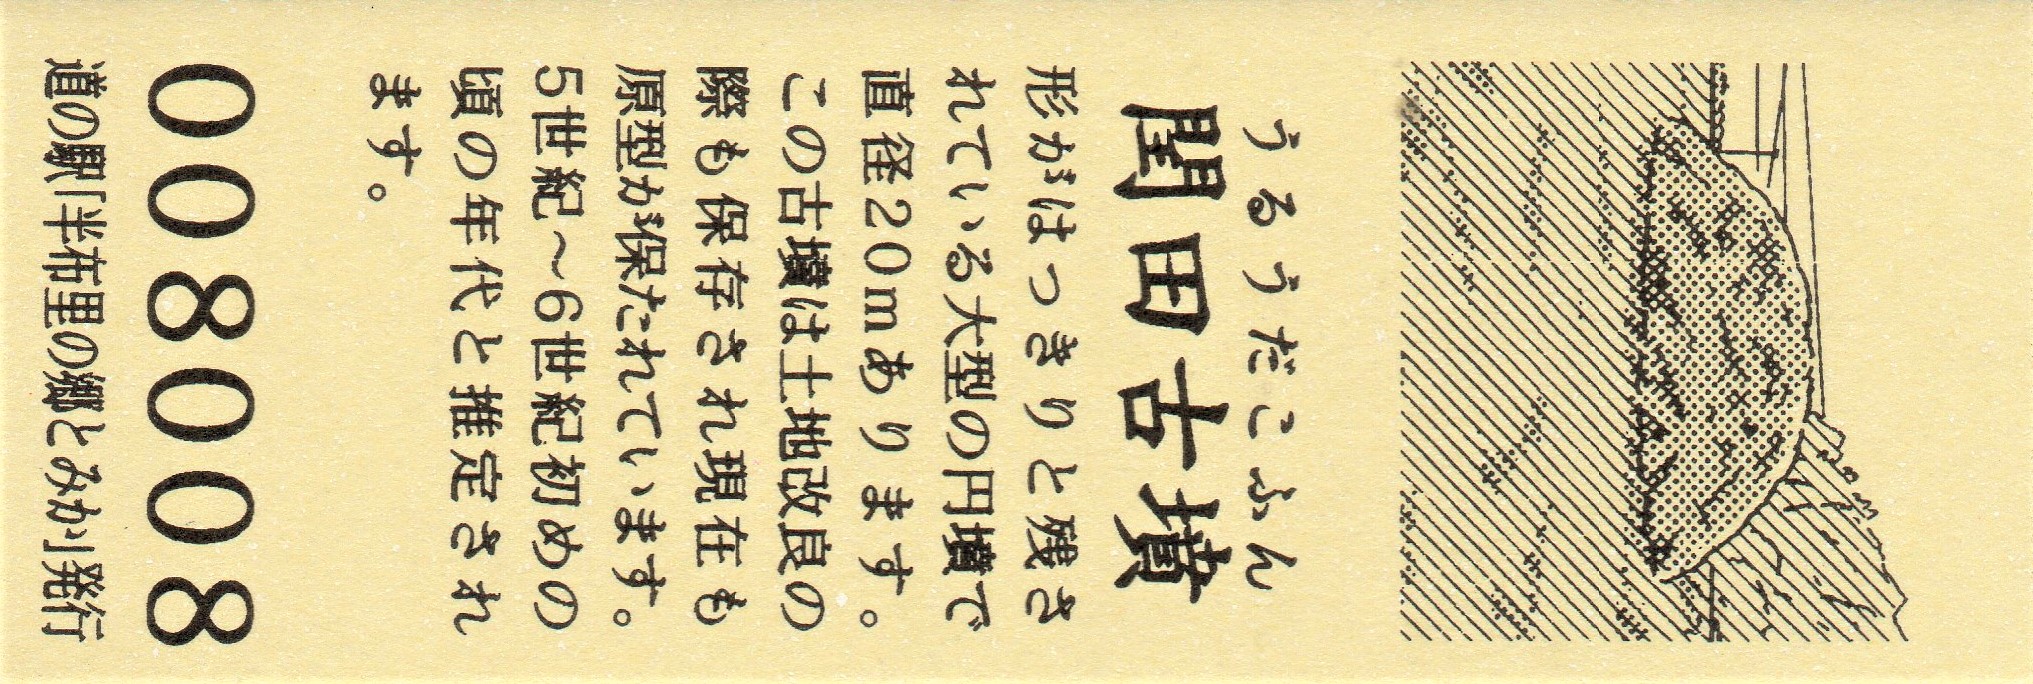 うるうだこふん
閏田古墳
形がはっきりと残さ
れている大型の円墳で
直径20mあります。
この古墳は土地改良の
際も保存され現在も
原型が保たれています。
5世紀～6世紀初めの
頃の年代と推定され
ます。
00808
道の駅「半布里の郷とみか」発行